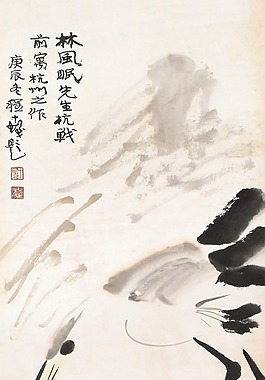 林風眠先生抗戰
前寓杭州之作
庚辰冬